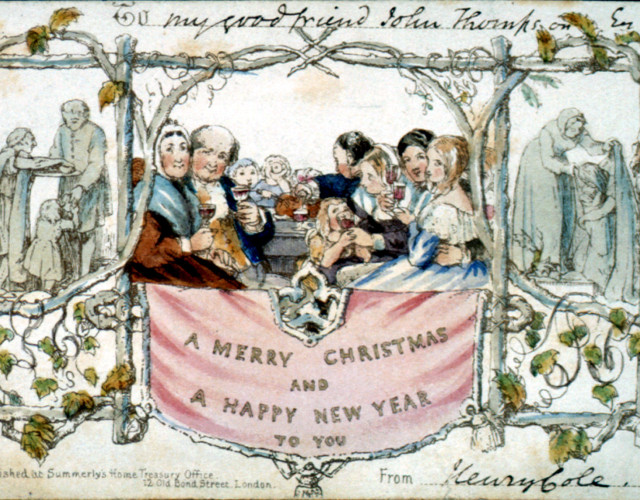 To my good friend John Thompson
A MERRY CHRISTMAS
AND
A HAPPY NEW YEAR
TO YOU
ished at Summerly's Home Treasury Office.
12 Old Bond Street, London.
From Henry Cole.